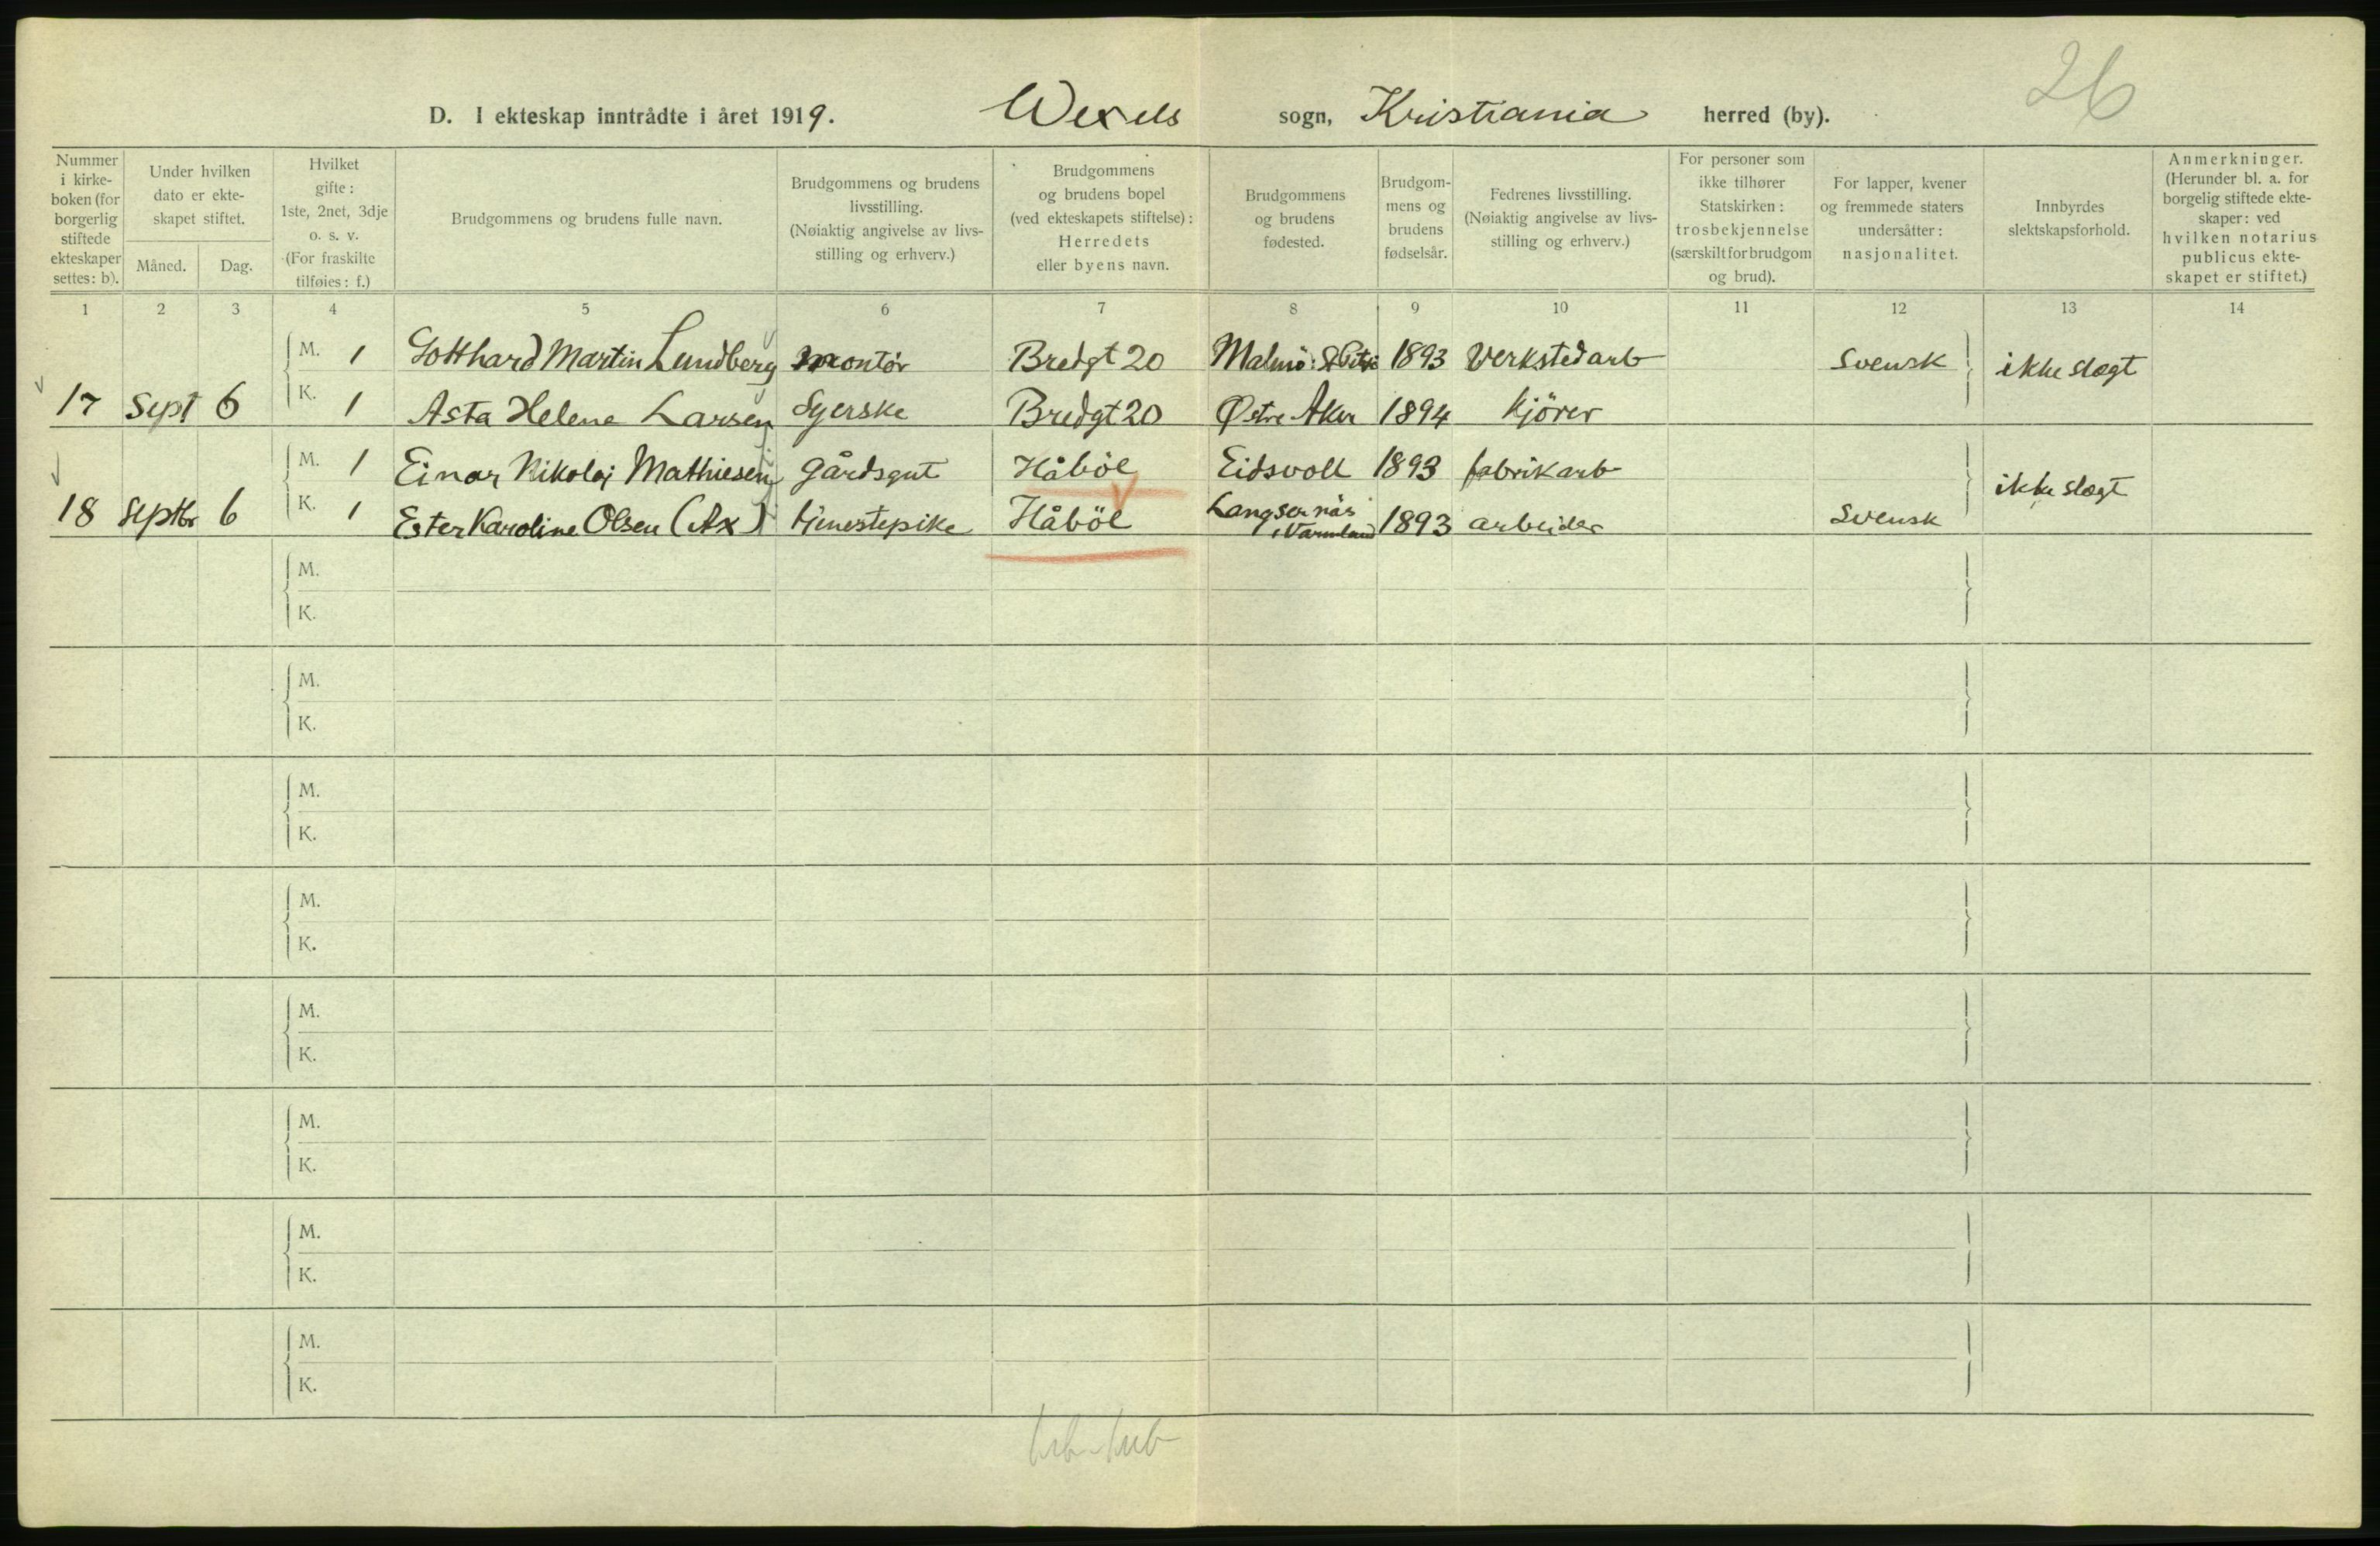 26
D. I ekteskap inntrådte i året 1919. Wexels sogn, Kristiania herred (by).
Nummer i kirke- boken (for borgerlig stiftede ekteskaper settes: b).
Under hvilken dato er ekte- skapet stiftet.
Måned. Dag.
Hvilket gifte: 1ste, 2net, 3dje o. s. v. (For fraskilte tilføies: f.)
Brudgommens og brudens fulle navn.
Brudgommens og brudens livsstilling. (Nøiaktig angivelse av livs- stilling og erhverv.)
Brudgommens og brudens bopel (ved ekteskapets stiftelse): Herredets eller byens navn.
Brudgommens og brudens fødested.
Brudgom- mens og brudens fødselsår.
Fedrenes livsstilling. (Nøiaktig angivelse av livs- stilling og erhverv.)
For personer som ikke tilhører Statskirken: trosbekjennelse (særskilt for brudgom og brud).
For lapper, kvener og fremmede staters undersåtter: nasjonalitet.
Innbyrdes slektskapsforhold.
Anmerkninger. (Herunder bl. a. for borgelig stiftede ekte- skaper: ved hvilken notarius publicus ekte- skapet er stiftet.)
1 2 3 4 5 6 7 8 9 10 11 12 13 14
M. 1 Gotthard Martin Lundberg montör Bredgt 20 Malmö 1893 Verkstedarb Svensk ikke slægt
17 Sept 6 K. 1 Asta Helene Larsen Syerske Bredgt 20 Østre Aker 1894 kjörer
M. 1 Einar Nikolaj Mathiesen gårdsgut Håböl Eidsvoll 1893 fabrikarb ikke slægt
18 Septbr 6 K. 1 Ester Karoline Olsen (Ax) tjenestepike Håböl i Varmland 1893 arbeider Svensk
M.
K.
M.
K.
M.
K.
M.
K.
M.
K.
M.
K.
M.
K.
M.
K.